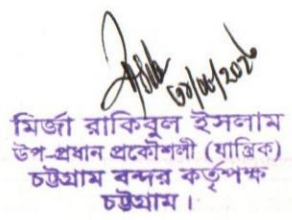 মির্জা রাকিবুল ইসলাম
উপ-প্রধান প্রকৌশলী (যান্ত্রিক)
চট্টগ্রাম বন্দর কর্তৃপক্ষ
চট্টগ্রাম।